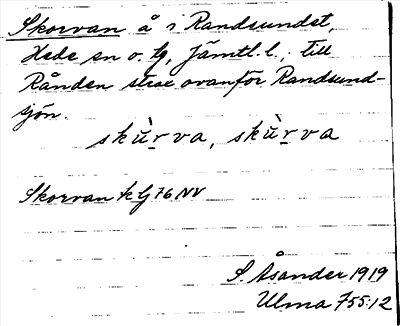 Skorvan å i Randsundet,
Hede sn o. tg, Jämtl. l., till
Rånden strax ovanför Randsund-
sjön.
skùrva, skùrva
Skorvan k G 76 NV
S. Åsander 1919
Ulma 755:12